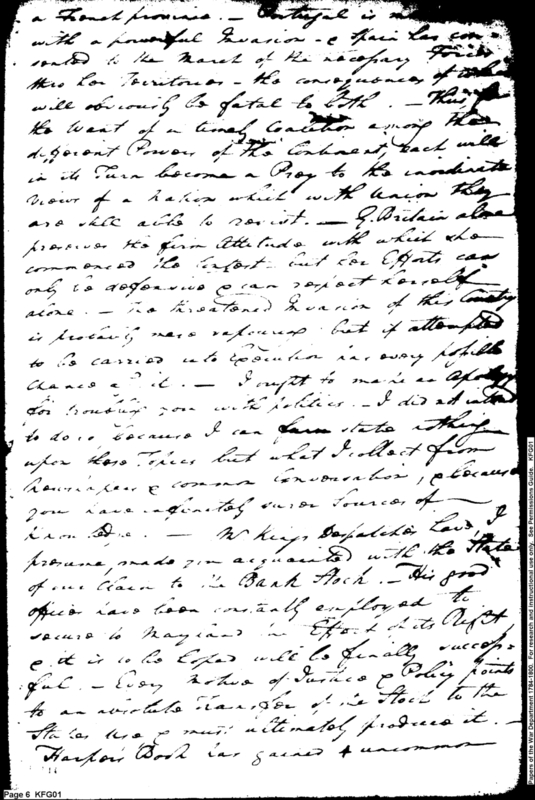 a French province. — Portugal is
with a powerful Invasion - & Spain has con-
sented to the March of the necessary Forces
thro her Territories - the consequences of which
will obviously be fatal to both. — Thus, for
the Want of a timely coalition among the
different Powers of the Continent, each will
in its Turn become a Prey to the inordinate
views of a Nation which with Union they
are still able to resist. — G. Britain alone
preserves the firm Attitude with which she
commenced the Contest - but her Efforts can
only be defensive & can respect herself
alone. — The threatened Invasion of this Country
is probably mere vapouring but if attempted
to be carried into Execution has every possible
chance it. — I ought to make an Apology
for troubling you with politics. — I did not intend
to do so because I can state nothing
upon these Topics but what I collect from
Newspapers & common Conversation, & because
you have infinitely surer Sources of
knowledge. — Mr Kings Despatches have, I
presume, made you acquainted with the State
of our Claim to the Bank Stock. — His good
offices have been constantly employed to
secure to Maryland the Effect of its Right,
& it is to be hoped will be finally success-
ful. — Every motive of Justice & Policy points
to an absolute Transfer of the Stock to the
States use & must ultimately produce it. —
Harper's Book has gained uncommon
Page 6 KFG01
Papers of the War Department 1784-1800. For research and instructional use only. See Permissions Guide. KFG01